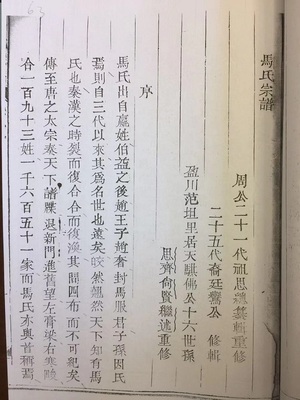 63
馬氏宗譜
周公二十一代祖思聰纂輯重修
二十五代裔廷響公 修輯
盈川范坦里居天騏佛公十六世孫
思齊尚賢繼述重修
序
馬氏出自嬴姓伯益之後趙王子趙奢封馬服君子孫因氏
焉則自三代以來其為名世也遠矣皎然翹然天下知有馬
氏也秦漢之時裂而復合合而復渙其間四布而不可紀矣
傳至唐之太宗奉天下譜牒退新門進舊望左膏梁右寒畯
合一百九十三姓一千六百五十一家而馬氏亦與首稱焉